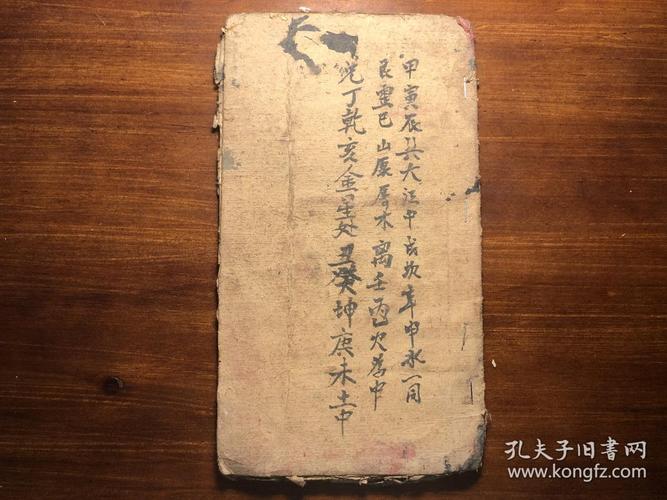 甲寅辰巽大江中戌坎辛申水一同
艮震巳山原属木離壬丙乙火為中
兑丁乾亥金星处丑癸坤庚未土中
孔夫子旧书网
www.kongfz.com